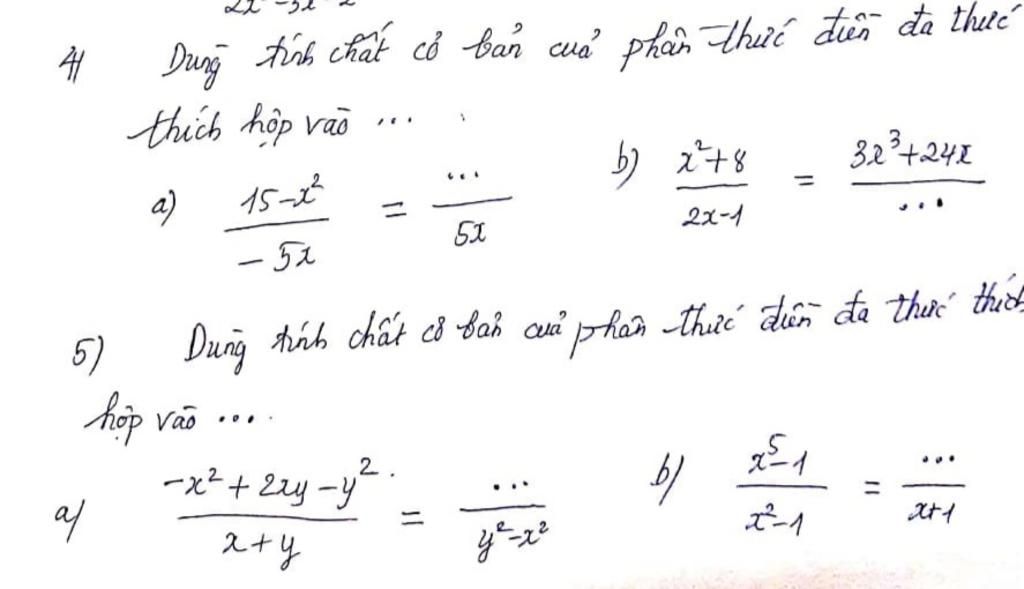 4) Dùng tính chất cơ bản của phân thức điền đa thức
thích hợp vào ...
a) (15-x²)/(-5x) = .../(5x) b) (x²+8)/(2x-1) = (3x³+24x)/...
5) Dùng tính chất cơ bản của phân thức điền đa thức thích
hợp vào ...
a) (-x²+2xy-y²)/(x+y) = .../(y²-x²) b) (x⁵-1)/(x²-1) = .../(x+1)